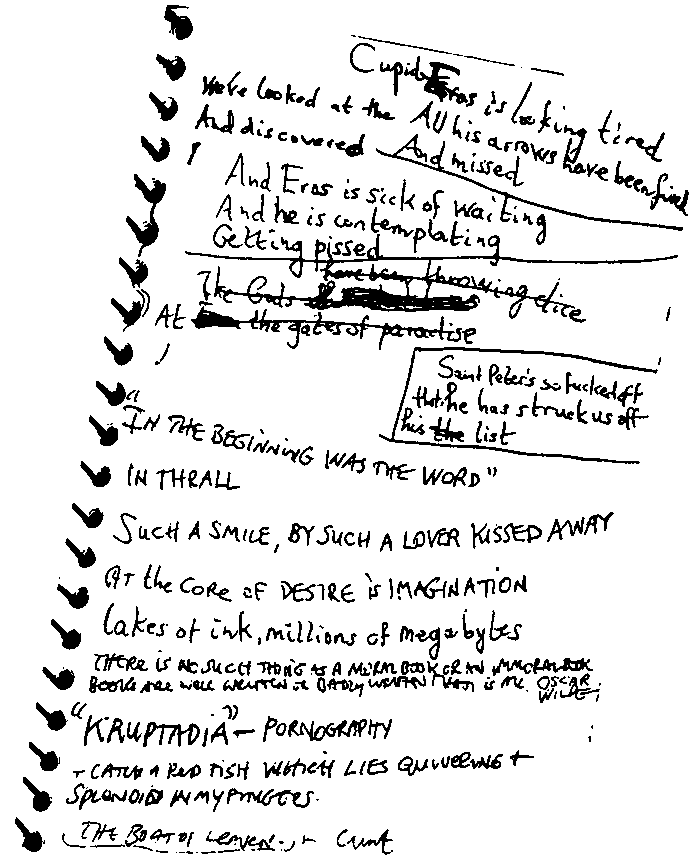 Cupid Eros is looking tired
We've looked at the All his arrows have been fired
And discovered And missed
And Eros is sick of waiting
And he is contemplating
Getting pissed
have been throwing dice
The Gods
At the gates of paradise
Saint Peter's so fucked off
that he has struck us off
his the list
"IN THE BEGINNING WAS THE WORD"
IN THRALL
SUCH A SMILE, BY SUCH A LOVER KISSED AWAY
AT the CORE OF DESIRE is IMAGINATION
lakes of ink, millions of megabytes
THERE IS NO SUCH THING AS A MORAL BOOK OR AN IMMORAL BOOK
BOOKS ARE WELL WRITTEN OR BADLY WRITTEN THAT IS ALL. OSCAR
WILDE
"KRUPTADIA" - PORNOGRAPHY
+ CATCH A RED FISH WHICH LIES QUIVERING +
SPLENDID IN MY FINGERS.
THE BOAT OF HEAVEN. + Cunt